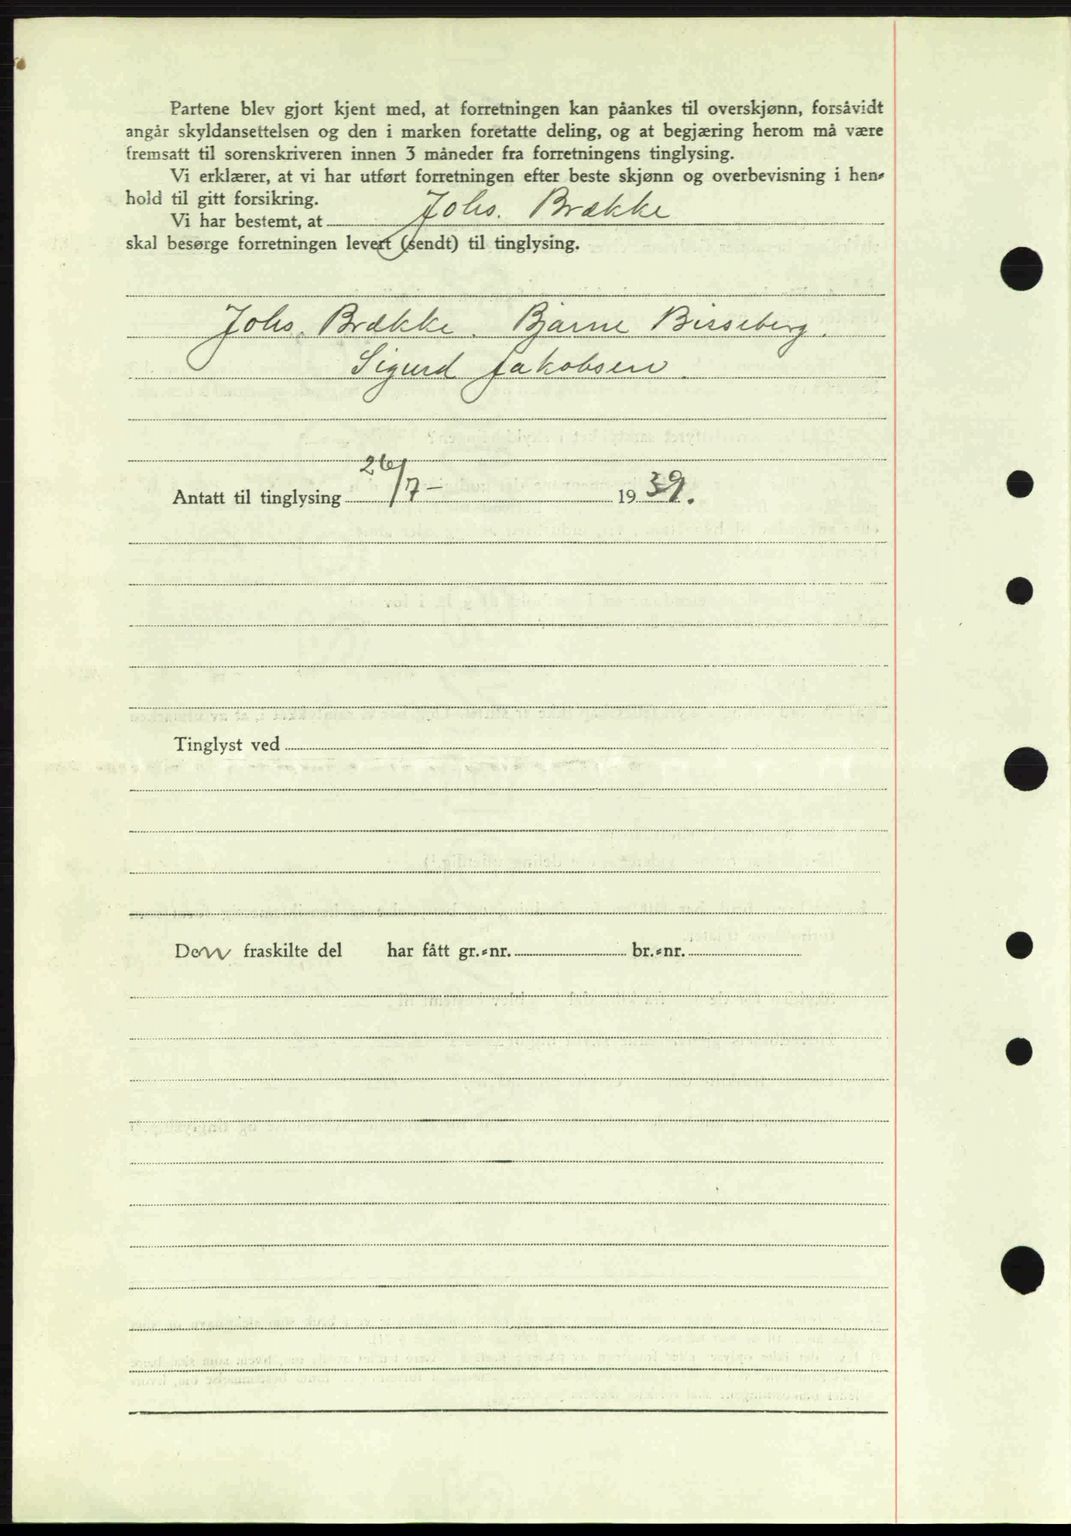 Partene blev gjort kjent med, at forretningen kan påankes til overskjønn, forsåvidt
angår skyldansettelsen og den i marken foretatte deling, og at begjæring herom må være
fremsatt til sorenskriveren innen 3 måneder fra forretningens tinglysing.
Vi erklærer, at vi har utført forretningen efter beste skjønn og overbevisning i hen-
hold til gitt forsikring.
Vi har bestemt, at Johs. Brække
skal besørge forretningen levert (sendt) til tinglysing.
Johs. Brække. Bjarne Bisseberg.
Sigurd Jakobsen.
Antatt til tinglysing 26/7- 1939.
Tinglyst ved
Den fraskilte del har fått gr.-nr. br.-nr.